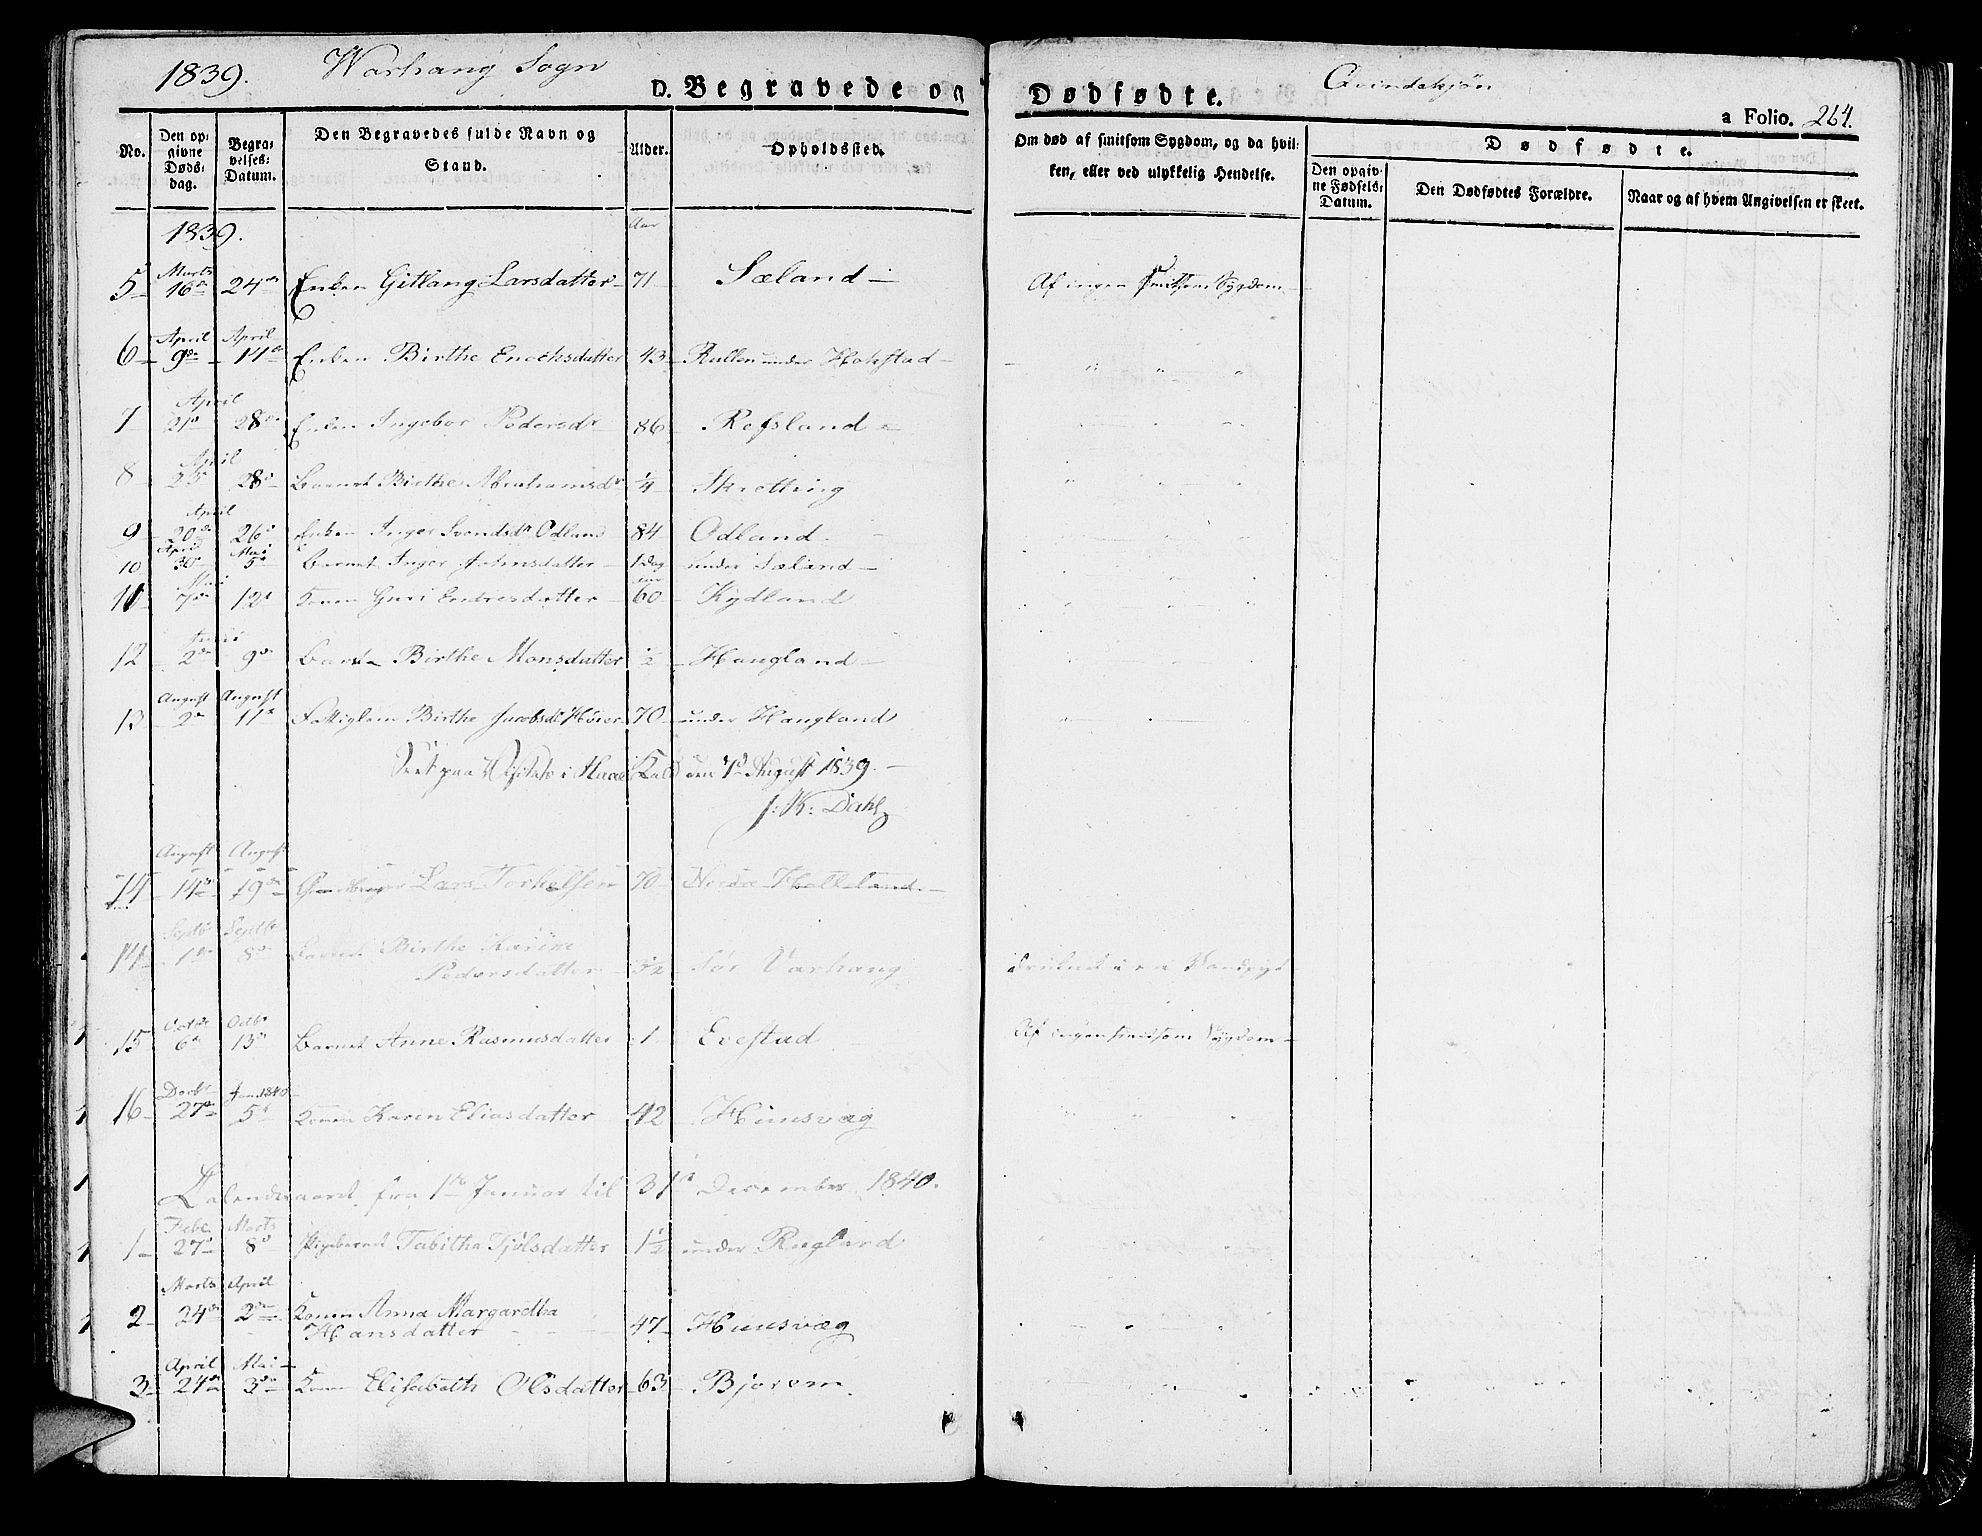 1839. Warhaug Sogn
D. Begravede og Dødfødte. Qvindekjøn
a Folio. 264.
No. Den opgivne Dødsdag. Begravelses-Datum. Den Begravedes fulde Navn og Stand. Alder. Opholdssted. Om død af smitsom Sygdom, og da hvilken, eller ved ulykkelig Hendelse. Dødfødte. Den opgivne Fødsels-Datum. Den Dødfødtes Forældre. Naar og af hvem Angivelsen er skeet.
1839. Aar
5 Marts 16de 24de Enken Gitlaug Larsdatter 71 Sæland Af ingen smitsom Sygdom
6 April 9de April 14de Enken Birthe Enochsdatter 43 Rullen under Hobstad " " "
7 April 21de 28de Enken Ingebor Pedersdr 86 Refsland
8 April 28de Barnet Birthe Abrahamsdr 1/4 Skretting
9 April 20de 26de Enken Inger Svendsdr Odland 84 Odland
10 April 30te Mai 5te Barnet Inger 1 Dag under Sæland
11 Mai 12te Konen Guri Endresdatter Aar 60 Kydland
12 Juni 2den 9de Birthe Monsdatter 1/2 Haugland
13 August 2den August 11te Fattiglem Birthe Jacobsdr 70 under Haugland
Seet paa Visitats i Haae den 7de August 1839.
J. K. Dahl
14 August 14de August 19de Lars Torkelsen 70 Nordre
14 Septb 1ste Septbr 8de Barnet Birthe Karine
Pedersdatter 3 1/2 Sør Varhaug
15 Octbr 6te Octbr 13de Barnet Anne Rasmusdatter 1 Evestad Af ingen smitsom Sygdom
16 Decbr 27de Jan. 1840 5te Konen Karen Eliasdatter 42 Hunsvæg
Calenderaaret fra 1ste Januar til 31te December 1840.
1 Febr 27de Marts 8de Pigebarnet Tabitha Tjølsdatter 1 1/2 under Rugland
2 Marts 24de April 2den Konen Anna Margaretha
Hansdatter 47 Hunsvæg
3 April 24de Mai 3de Konen Elisabeth Olsdatter 63 Bjorem